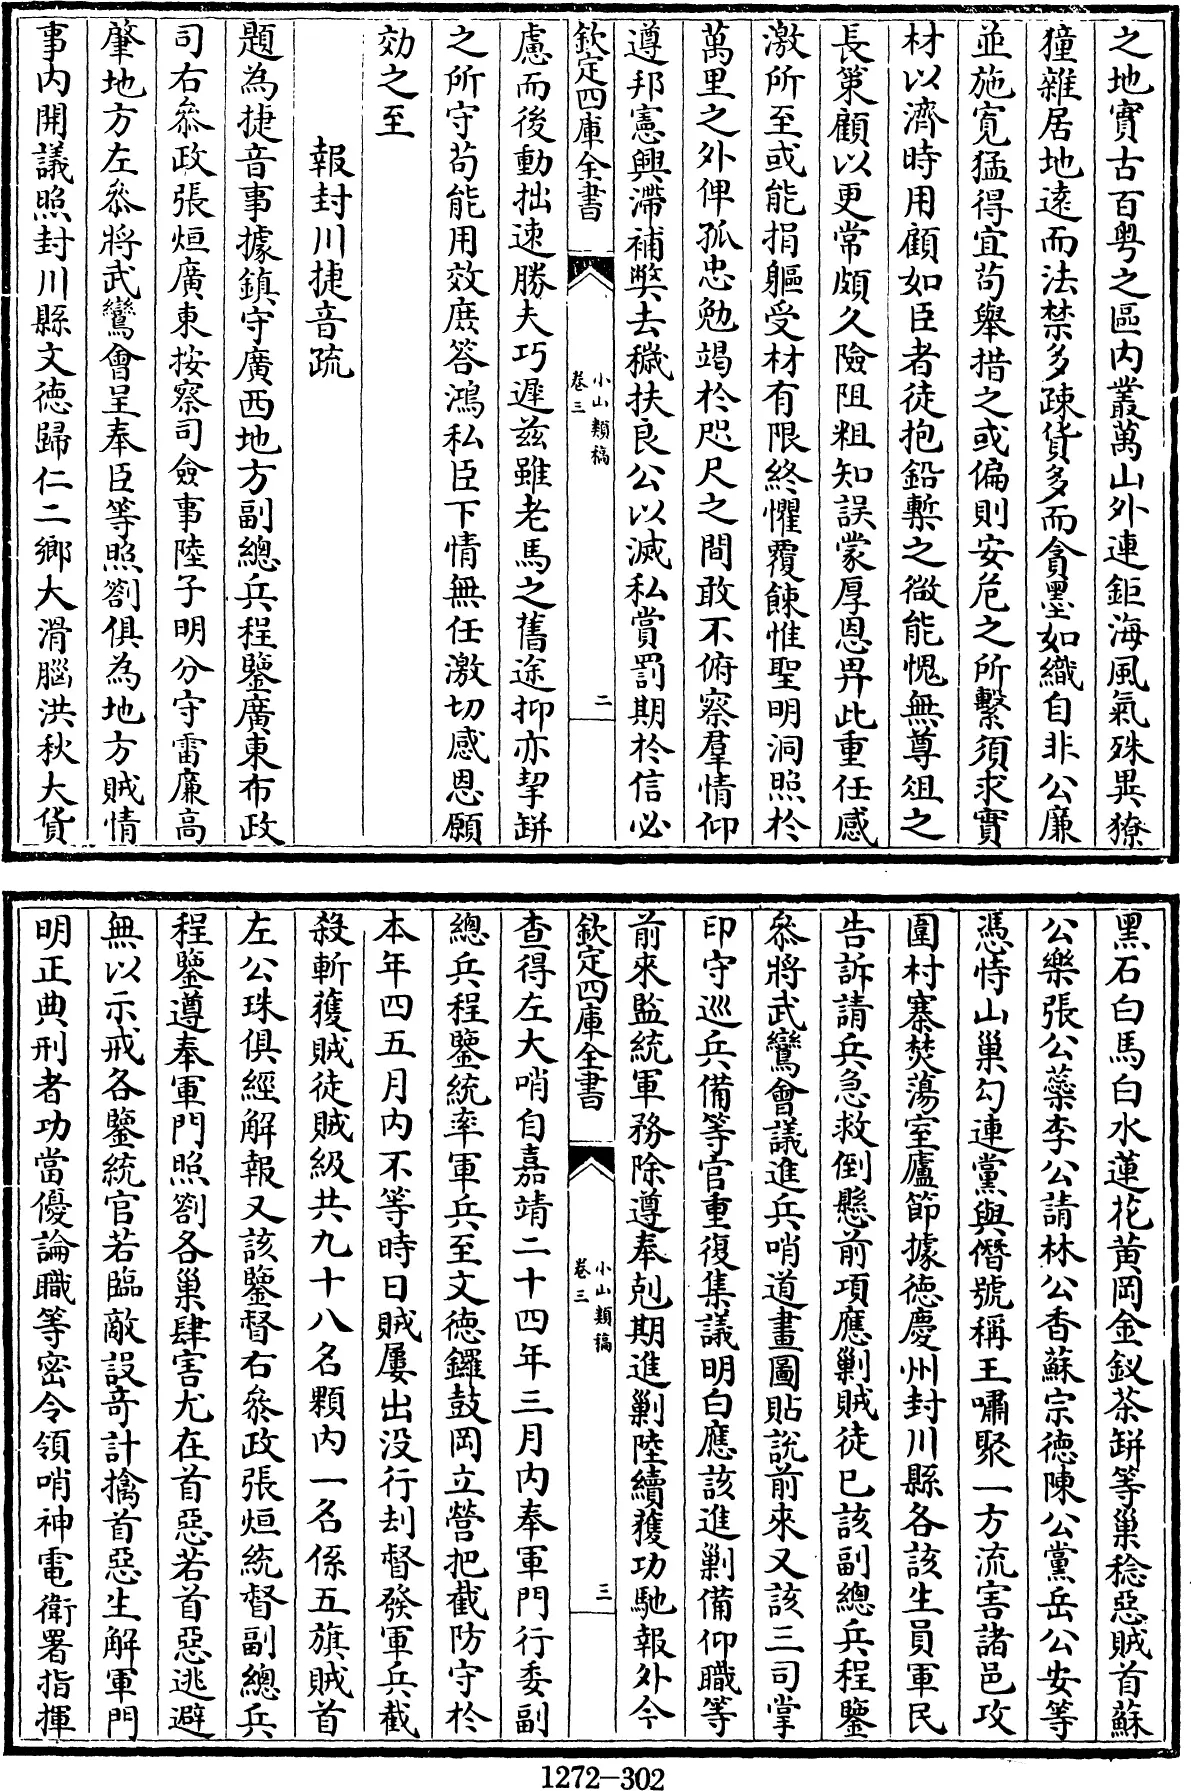 之地實古百粤之區内叢萬山外連鉅海風氣殊異獠
獞雜居地逺而法禁多疎貨多而貪墨如織自非公廉
並施寛猛得宜茍舉措之或偏則安危之所繫須求實
材以濟時用顧如臣者徒抱鉛槧之微能愧無尊俎之
長策顧以更常頗久險阻粗知誤蒙厚恩畀此重任感
激所至或能捐軀受材有限終懼覆餗惟聖明洞照於
萬里之外俾孤忠勉竭於咫尺之間敢不俯察羣情仰
遵邦憲興滯補弊去穢扶良公以滅私賞罰期於信必
欽定四庫全書
小山類稿
卷三
二
慮而後動拙速勝夫巧遲兹雖老馬之舊途抑亦挈缾
之所守茍能用效庶答鴻私臣下情無任激切感恩願
効之至
報封川捷音疏
題為捷音事據鎮守廣西地方副總兵程鑒廣東布政
司右叅政張烜廣東按察司僉事陸子明分守雷廉高
肇地方左叅將武鸞會呈奉臣等照劄俱為地方賊情
事内開議照封川縣文徳歸仁二鄉大滑腦洪秋大貨
黑石白馬白水蓮花黄岡金釵茶缾等巢稔惡賊首蘇
公樂張公蘂李公請林公香蘇宗徳陳公黨岳公安等
憑恃山巢勾連黨與僭號稱王嘯聚一方流害諸邑攻
圍村寨焚蕩室廬節據徳慶州封川縣各該生員軍民
告訴請兵急救倒懸前項應剿賊徒已該副總兵程鑒
叅將武鸞會議進兵哨道畫圖貼説前來又該三司掌
印守巡兵備等官重復集議明白應該進剿備仰職等
前來監統軍務除遵奉剋期進剿陸續獲功馳報外今
欽定四庫全書
小山類稿
卷三
三
查得左大哨自嘉靖二十四年三月内奉軍門行委副
總兵程鑒統率軍兵至文徳鑼鼓岡立營把截防守於
本年四五月内不等時日賊屢出没行刦督發軍兵截
殺斬獲賊徒賊級共九十八名顆内一名係五旗賊首
左公珠俱經解報又該鑒督右叅政張烜統督副總兵
程鑒遵奉軍門照劄各巢肆害尤在首惡若首惡逃避
無以示戒各鑒統官若臨敵設奇計擒首惡生解軍門
明正典刑者功當優論職等密令領哨神電衛署指揮
1272—302